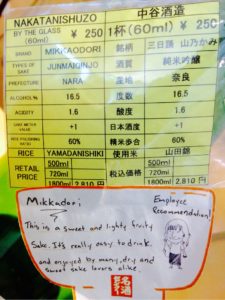 NAKATANISHUZO 中谷酒造
BY THE GLASS (60ml) ¥ 250 1杯(60ml) ¥ 250
BRAND MIKKAODORI 銘柄 三日踊 山乃かみ
TYPES OF SAKE JUNMAIGINJO 酒質 純米吟醸
PREFECTURE NARA 産地 奈良
ALCOHOL% 16.5 度数 16.5
ACIDITY 1.6 酸度 1.6
SAKE METER VALUE +1 日本酒度 +1
RICE POLISHING RATIO 60% 精米歩合 60%
RICE YAMADANISHIKI 使用米 山田錦
RETAIL PRICE 500ml 税込価格 500ml
720ml 720ml
1800ml 2,810 円 1800ml 2,810 円
Mikkadori
Employee Recommendation!
This is a sweet and lightly fruity
Sake. It's really easy to drink,
and enjoyed by many, dry and
sweet sake lovers alike.
名酒